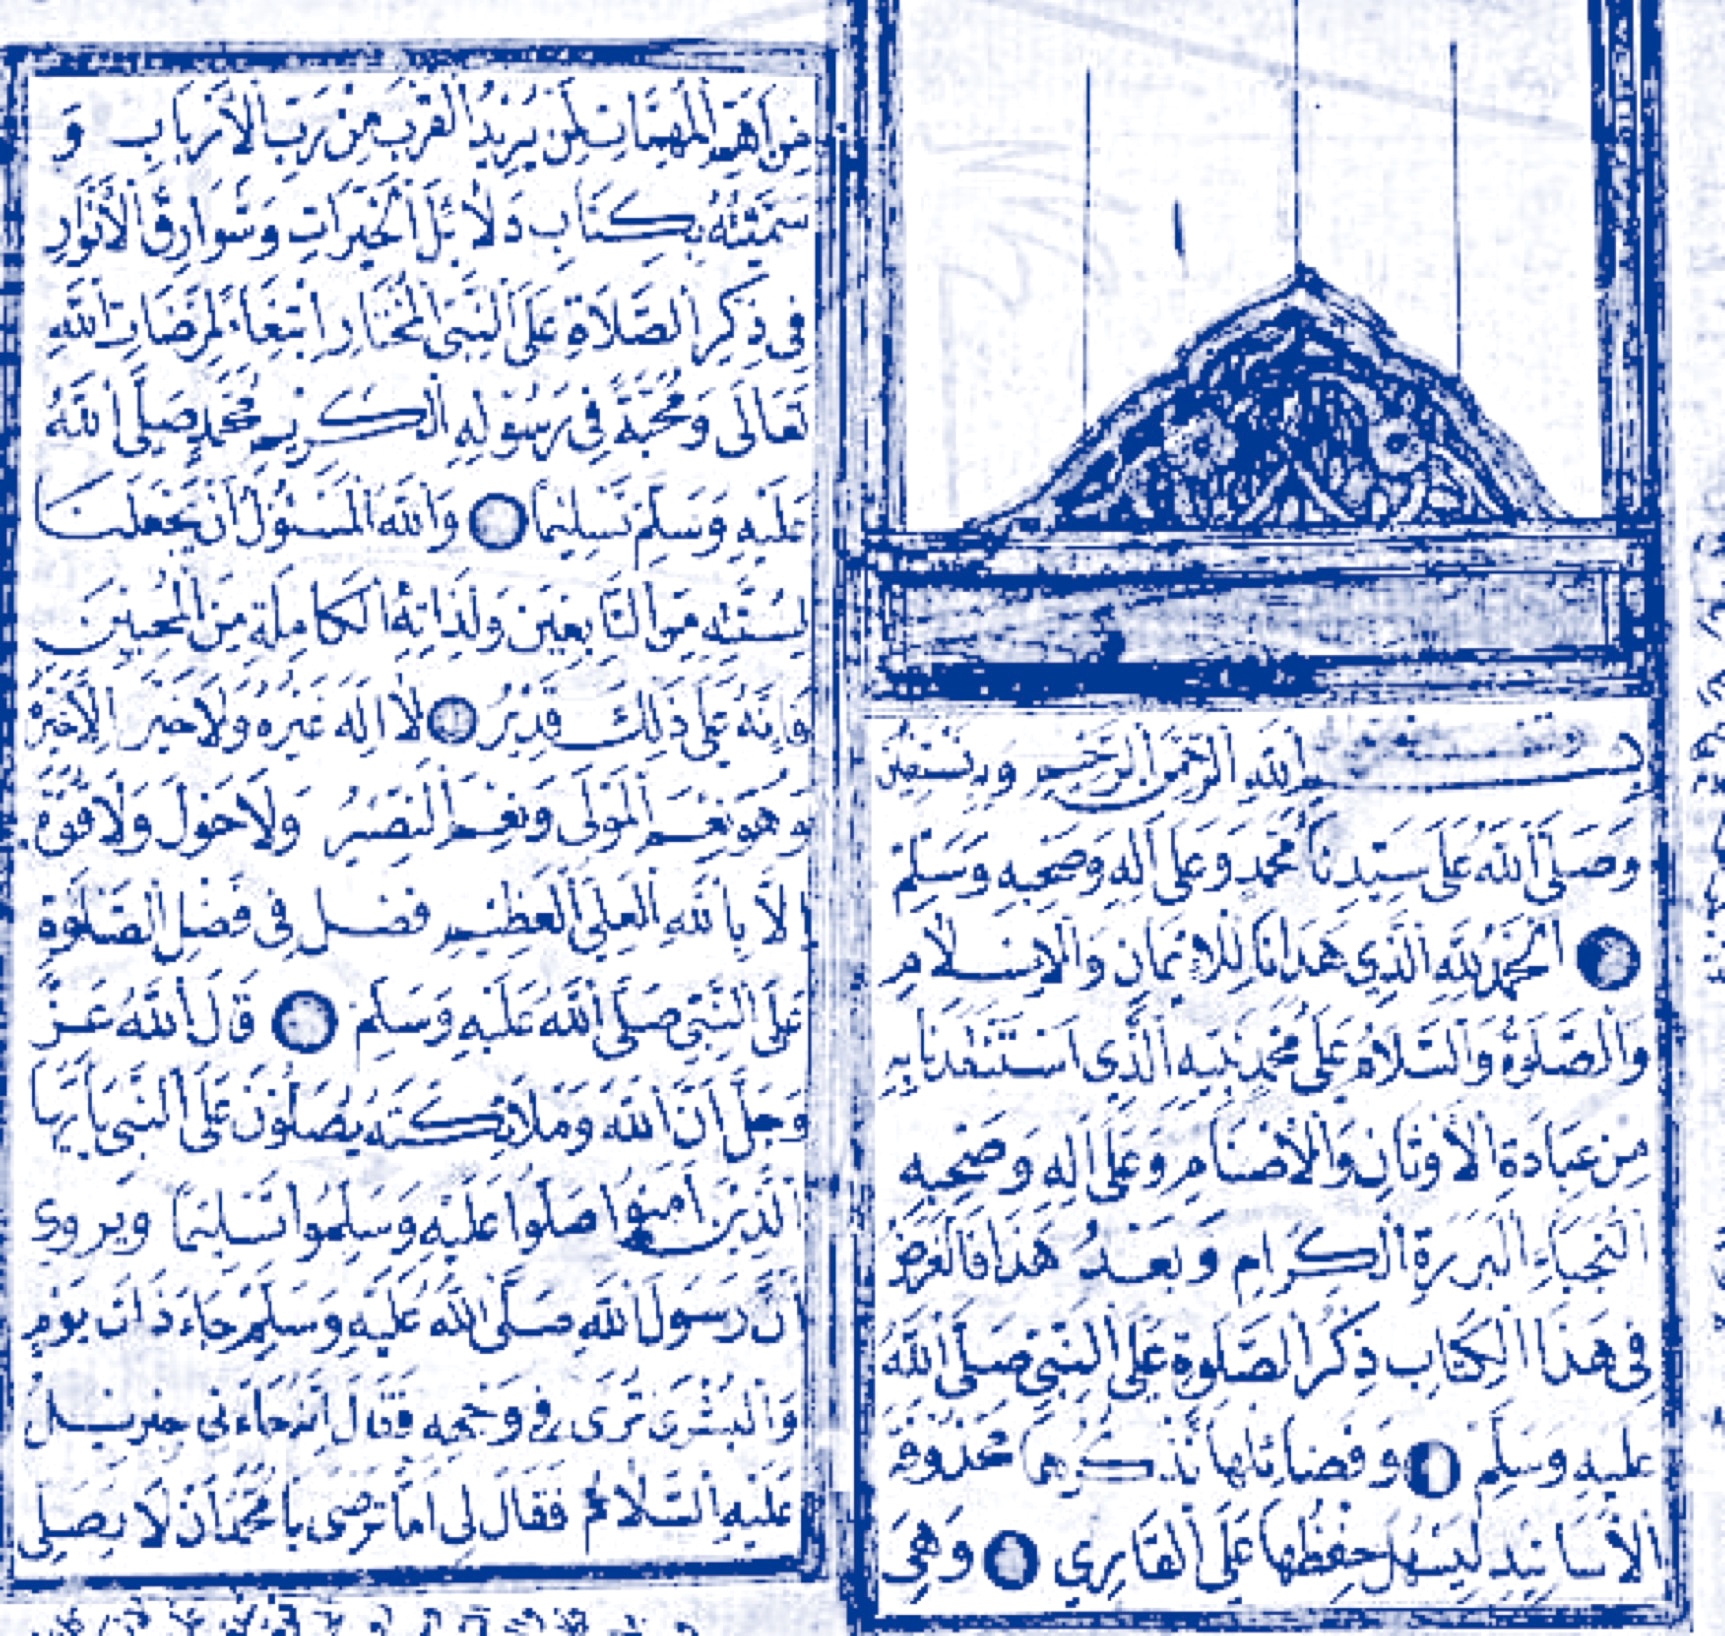 بسم الله الرحمن الرحيم وبه نستعين
وَصَلَّى اللهُ عَلَى سَيِّدِنَا مُحَمَّدٍ وَعَلَى آلِهِ وَصَحْبِهِ وَسَلَّمَ
اَلْحَمْدُ لِلَّهِ الَّذِي هَدَانَا لِلْإِيمَانِ وَالْإِسْلَامِ
وَالصَّلَوٰةُ وَالسَّلَامُ عَلَى مُحَمَّدٍ نَبِيِّهِ الَّذِي اسْتَنْقَذَنَا بِهِ
مِنْ عِبَادَةِ الْأَوْثَانِ وَالْأَصْنَامِ وَعَلَى آلِهِ وَصَحْبِهِ
النُّجَبَاءِ الْبَرَرَةِ الْكِرَامِ وَبَعْدُ هَذَا فَالْغَرَضُ
فِي هَذَا الْكِتَابِ ذِكْرُ الصَّلَوٰةِ عَلَى النَّبِيِّ صَلَّى اللهُ
عَلَيْهِ وَسَلَّمَ وَفَضَائِلِهَا نَذْكُرُهَا مَحْذُوفَةَ
الْأَسَانِيدِ لِيَسْهُلَ حِفْظُهَا عَلَى الْقَارِي وَهِيَ
مِنْ أَهَمِّ الْمُهِمَّاتِ لِمَنْ يُرِيدُ الْقُرْبَ مِنْ رَبِّ الْأَرْبَابِ وَ
سَمَّيْتُهُ بِكِتَابِ دَلَائِلِ الْخَيْرَاتِ وَشَوَارِقِ الْأَنْوَارِ
فِي ذِكْرِ الصَّلَاةِ عَلَى النَّبِيِّ الْمُخْتَارِ ابْتِغَاءً لِمَرْضَاتِ اللهِ
تَعَالَى وَمَحَبَّةً فِي رَسُولِهِ الْكَرِيمِ مُحَمَّدٍ صَلَّى اللهُ
عَلَيْهِ وَسَلَّمَ تَسْلِيمًا وَاللهُ الْمَسْئُولُ أَنْ يَجْعَلَنَا
لِسُنَّتِهِ مِنَ التَّابِعِينَ وَلِذَاتِهِ الْكَامِلَةِ مِنَ الْمُحِبِّينَ
فَإِنَّهُ عَلَى ذَلِكَ قَدِيرٌ لَا إِلَهَ غَيْرُهُ وَلَا خَيْرَ إِلَّا خَيْرُهُ
وَهُوَ نِعْمَ الْمَوْلَى وَنِعْمَ النَّصِيرُ وَلَا حَوْلَ وَلَا قُوَّةَ
إِلَّا بِاللهِ الْعَلِيِّ الْعَظِيمِ فَصْلٌ فِي فَضْلِ الصَّلَوٰةِ
عَلَى النَّبِيِّ صَلَّى اللهُ عَلَيْهِ وَسَلَّمَ قَالَ اللهُ عَزَّ
وَجَلَّ إِنَّ اللهَ وَمَلَائِكَتَهُ يُصَلُّونَ عَلَى النَّبِيِّ يَا أَيُّهَا
الَّذِينَ آمَنُوا صَلُّوا عَلَيْهِ وَسَلِّمُوا تَسْلِيمًا وَيُرْوَى
أَنَّ رَسُولَ اللهِ صَلَّى اللهُ عَلَيْهِ وَسَلَّمَ جَاءَ ذَاتَ يَوْمٍ
وَالْبُشْرَى تُرَى فِي وَجْهِهِ فَقَالَ إِنَّهُ جَاءَنِي جِبْرِيلُ
عَلَيْهِ السَّلَامُ فَقَالَ لِي أَمَا تَرْضَى يَا مُحَمَّدُ أَنْ لَا يُصَلِّيَ